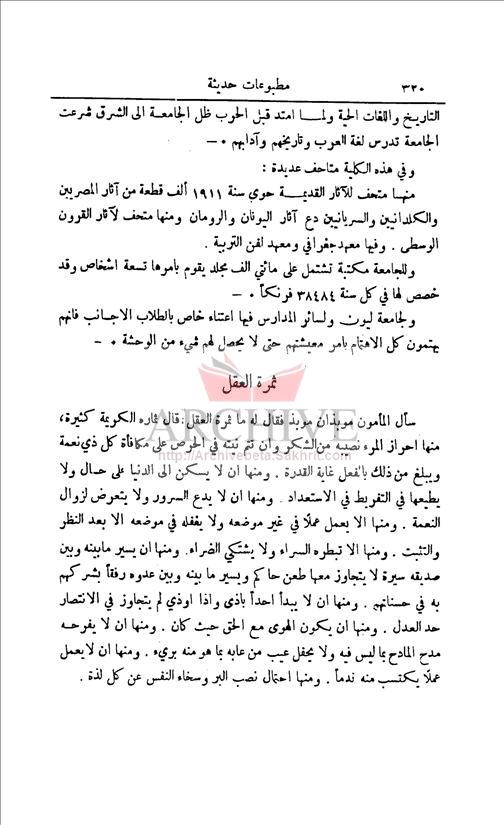 ٣٢٠ مطبوعات حديثة
التاريخ واللغات الحية ولما امتد قبل الحرب ظل الجامعة الى الشرق شرعت
الجامعة تدرس لغة العرب وتاريخهم وآدابهم ٠ —
وفي هذه الكلية متاحف عديدة :
منها متحف للآثار القديمة حوي سنة ١٩١١ ألف قطعة من آثار المصريين
والكلدانيين والسريانيين دع آثار اليونان والرومان ومنها متحف لآثار القرون
الوسطى . وفيها معهد جغرافي ومعهد لفن التربية .
وللجامعة مكتبة تشتمل على مائتي الف مجلد يقوم بامرها تسعة اشخاص وقد
خصص لها في كل سنة ٣٨٤٨٤ فرنكاً ٠ —
ولجامعة ليون ولسائر المدارس فيها اعتناء خاص بالطلاب الاجانب فانهم
يهتمون كل الاهتمام بامر معيشتهم حتى لا يحصل لهم شيء من الوحشة ٠ —
ثمرة العقل
سأل المأمون موبذان موبذ فقال له ما ثمرة العقل : قال ثماره الكريمة كثيرة،
منها احراز المرء نصيبه من الشكر وان تتر نيته في الحرص على مكافأة كل ذي نعمة
ويبلغ من ذلك بالفعل غاية القدرة . ومنها ان لا يسكن الى الدنيا على حال ولا
يطيعها في التفريط في الاستعداد . ومنها ان لا يدع السرور ولا يتعرض لزوال
النعمة . ومنها الا يعمل عملًا في غير موضعه ولا يغفله في موضعه الا بعد النظر
والتثبت . ومنها الا تبطره السراء ولا يشتكي الضراء. ومنها ان يسير مابينه وبين
صديقه سيرة لا يتجاوز معها طعن حاكم ويسير ما بينه وبين عدوه رفقاً بشركهم
به في حسناتهم . ومنها ان لا يبدأ احداً باذى واذا اوذي لم يتجاوز في الانتصار
حد العدل . ومنها ان يكون الهوى مع الحق حيث كان . ومنها ان لا يفرحه
مدح المادح بما ليس فيه ولا يحفل عيب من عابه بما هو منه بريء . ومنها ان لا يعمل
عملًا يكتسب منه ندماً . ومنها احتمال نصب البر وسخاء النفس عن كل لذة .
ARCHIVE
http://Archivebeta.Sakhrit.com